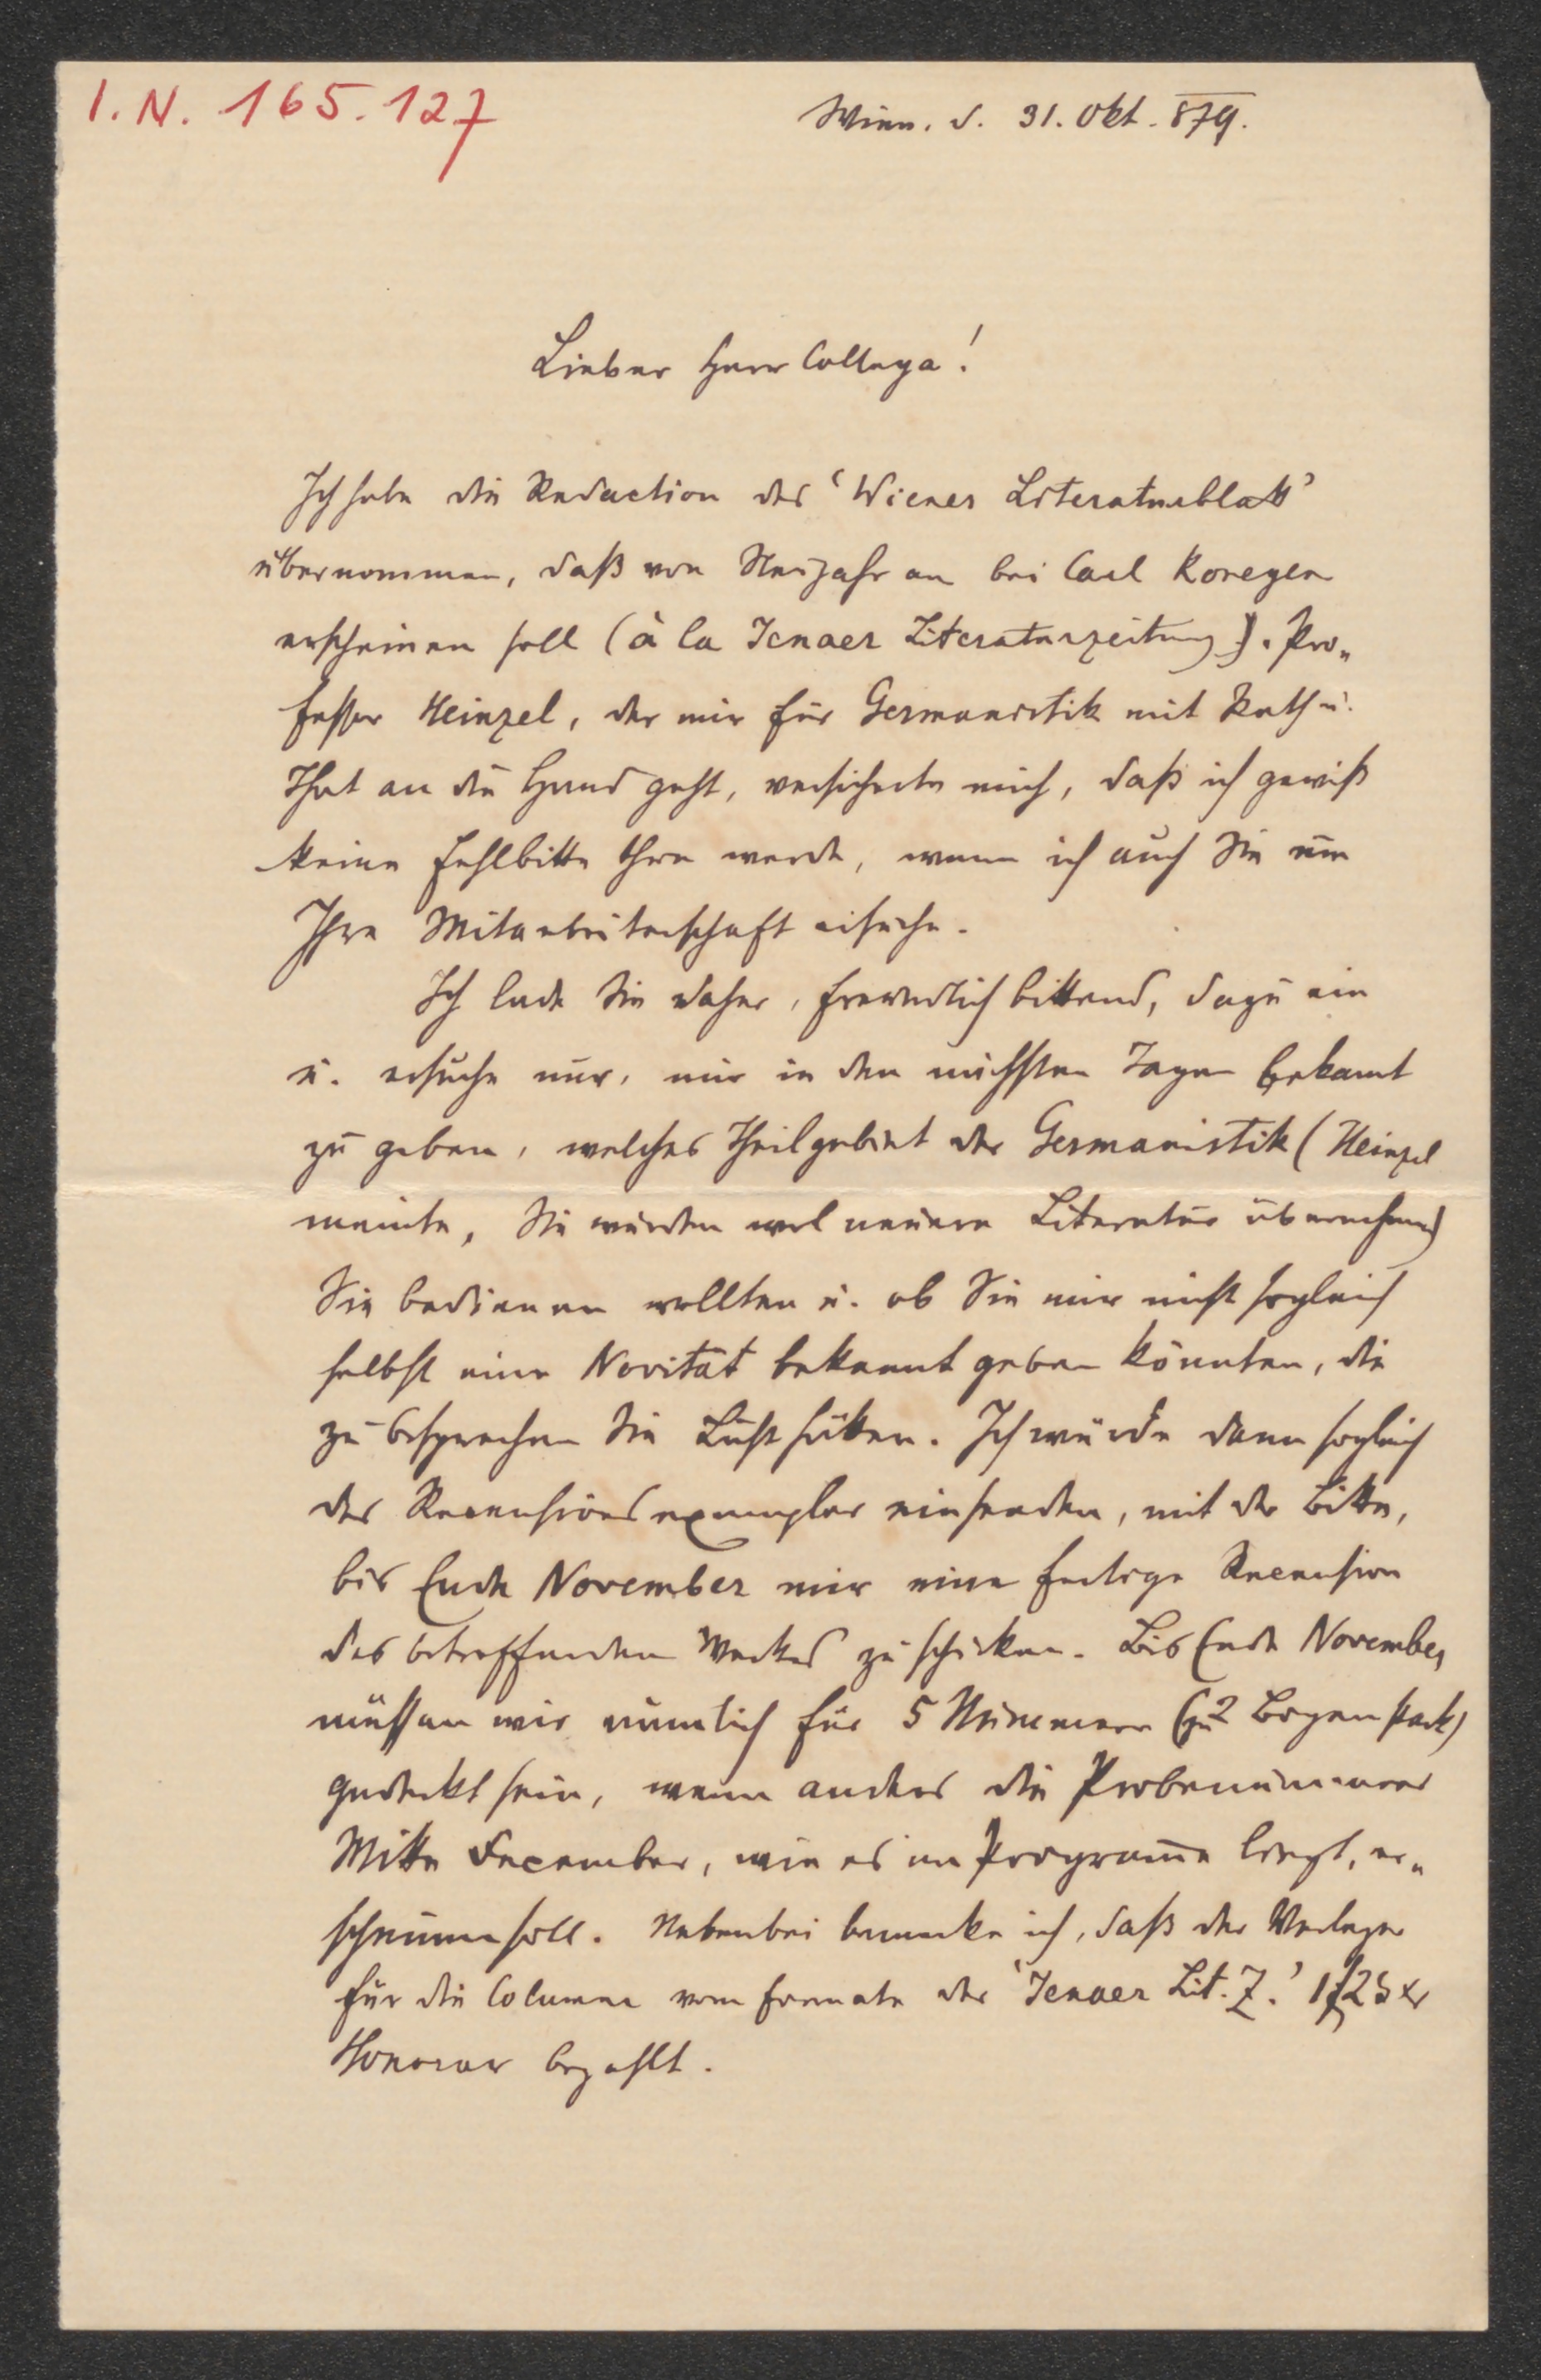 I. N. 165.127
Wien. d. 31. Okt. 879.
Lieber Herr Collega!
Ich habe die Redaction des ‘Wiener Literaturblatt’
übernommen, daß von Neujahr an bei Carl Konegen
erscheinen soll (à la Jenaer Literaturzeitung). Pro„
fessor Heinzel, der mir für Germanistik mit Rath u.
That an die Hand geht, versicherte mich, daß ich gewiß
keine Fehlbitte thun werde, wenn ich auch Sie um
Ihre Mitarbeiterschaft ersuche.
Ich lade Sie daher, freundlich bittend, dazu ein
u. ersuche nur, mir in den nächsten Tagen bekannt
zu geben, welches Theilgebiet der Germanistik (Heinzel
meinte, Sie würden wol neuere Literatur übernehmen)
Sie bedienen wollten u. ob Sie mir nicht sogleich
selbst eine Novität bekannt geben könnten, die
zu besprechen Sie Lust hätten. Ich würde dann sogleich
das Recensionsexemplar einsenden, mit der Bitte,
bis Ende November mir eine fertige Recension
des betreffenden Werkes zu schicken. Bis Ende November
müssen wir nämlich für 5 Nummern (zu 2 Bogen stark)
gedeckt sein, wenn anders die Probenummer
Mitte December, wie es im Programme liegt, er„
scheinen soll. Nebenbei bemerke ich, daß der Verleger
für die Columne vom Formate der ‘Jenaer Lit. Z.’ 1f 25 xr
Honorar bezahlt.